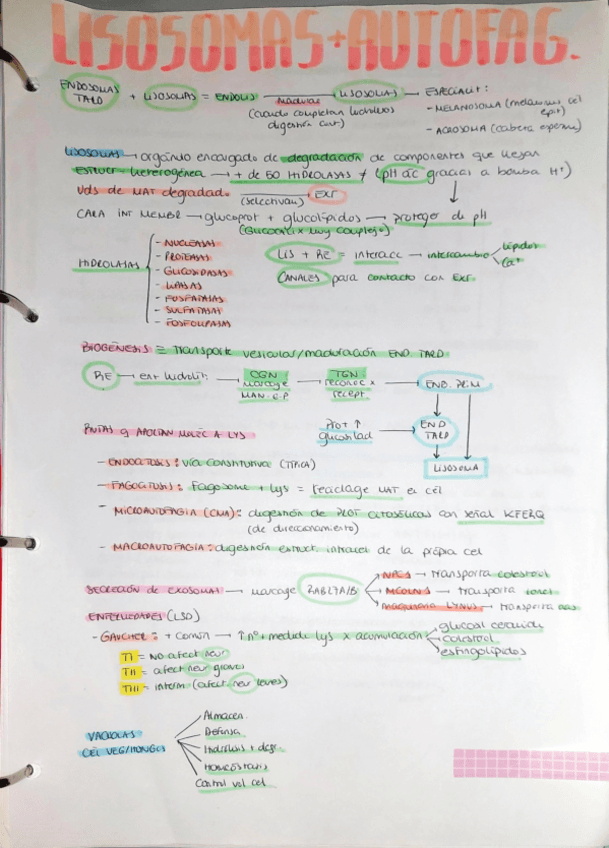 LISOSOMAS + AUTOFAG.
ENDOSOMAS TARD + LISOSOMAS = ENDOLIS → LISOSOMAS → ESPECIALIT:
maduras
(cuando completan hidrólisis digestión cont)
- MELANOSOMA (melaninas cel epit)
- ACROSOMA (cabeza esperm)
LISOSOMAS → orgánulo encargado de degradación de componentes que llegan
estruct. heterogénea → + de 60 HIDROLASAS ≠ (pH ác gracias a bomba H⁺)
Uds de MAT degradad. → Ext
(selectivam)
CARA INT MEMBR → glucoprot + glucolípidos → proteger de pH
(Glucocálix muy complejo)
HIDROLASAS
- NUCLEASAS
- PROTEASAS
- GLICOSIDASAS
- LIPASAS
- FOSFATASAS
- SULFATASAS
- FOSFOLIPASAS
LIS + RE = interacc → intercambio
lípidos
Ca⁺
CANALES para contacto con Ext.
BIOGÉNESIS = transporte vesicular/maduración END. TARD.
RE → enz hidrolít: → CGN marcaje MAN. 6P → TGN reconoc x recept. → END. PRIM
Prot ↑ glucosilad → END TARD
LISOSOMA
RUTAS q APORTAN MOLÉC A LYS
- ENDOCITOSIS: vía constitutiva (TÍPICA)
- FAGOCITOSIS: Fagosoma + Lys = reciclaje MAT en cél
- MICROAUTOFAGIA (CMA): digestión de PROT citosólicas con señal KFERQ
(de direccionamiento)
- MACROAUTOFAGIA: digestión estruct. intracel de la propia cel
SECRECIÓN DE EXOSOMAS → marcaje RAB27A/B
NPCS → transporta colesterol
MCOLNS → transporta iones
maquinaria LYNUS → transporta aas
ENFERMEDADES (LSD)
- GAUCHER: + común → ↑ nº + medida lys x acumulación
glucosil ceramida
colesterol
esfingolípidos
TI = NO afect neur
TII = afect neur graves
TIII = interm (afect neu leves)
VACUOLAS
CÉL VEG/HONGOS
Almacen
Defensa
Hidrólisis + degr.
Homeostasis
Control vol cel